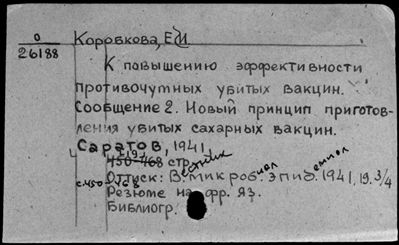 0
26188
Коробкова, Е.И
К повышению эффективности
противочумных убитых вакцин.
Сообщение 2. Новый принцип приготов-
ления убитых сахарных вакцин.
Саратов, 1941
450-468 стр.
Оттиск: Вестник микробиол. эпид. 1941, 19. 3/4
с.450-468
Резюме на фр. яз.
Библиогр.